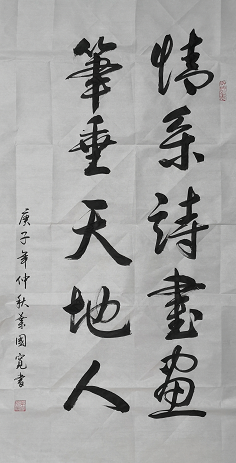 情系詩書畫
筆垂天地人
庚子年仲秋葉國寬書